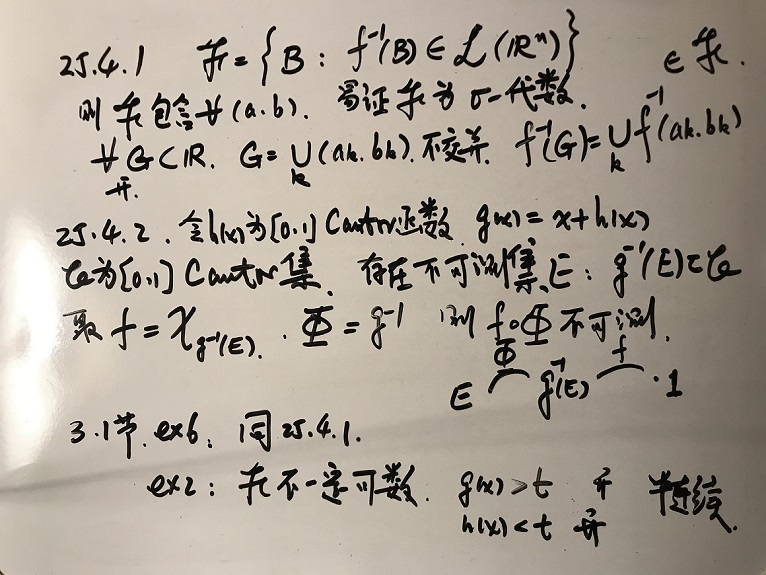 25.4.1 ℱ={B: f⁻¹(B)∈ℒ(ℝⁿ)} ∈ℱ.
则ℱ包含∀(a.b). 易证ℱ为σ-代数.
∀开G⊂ℝ. G=⋃ₖ(aₖ.bₖ).不交并. f⁻¹(G)=⋃ₖf⁻¹(aₖ.bₖ)
25.4.2. 令h(x)为[0.1]Cantor函数. g(x)=x+h(x)
𝒞为[0.1]Cantor集. 存在不可测集E: g⁻¹(E)⊂𝒞
取f=χ_{g⁻¹(E)}. Φ=g⁻¹ 则f∘Φ不可测.
E Φ g⁻¹(E) f 1
3.1节.ex6: 同25.4.1.
ex2: ℱ不一定可数. g(x)>t 开 半连续.
h(x)<t 开